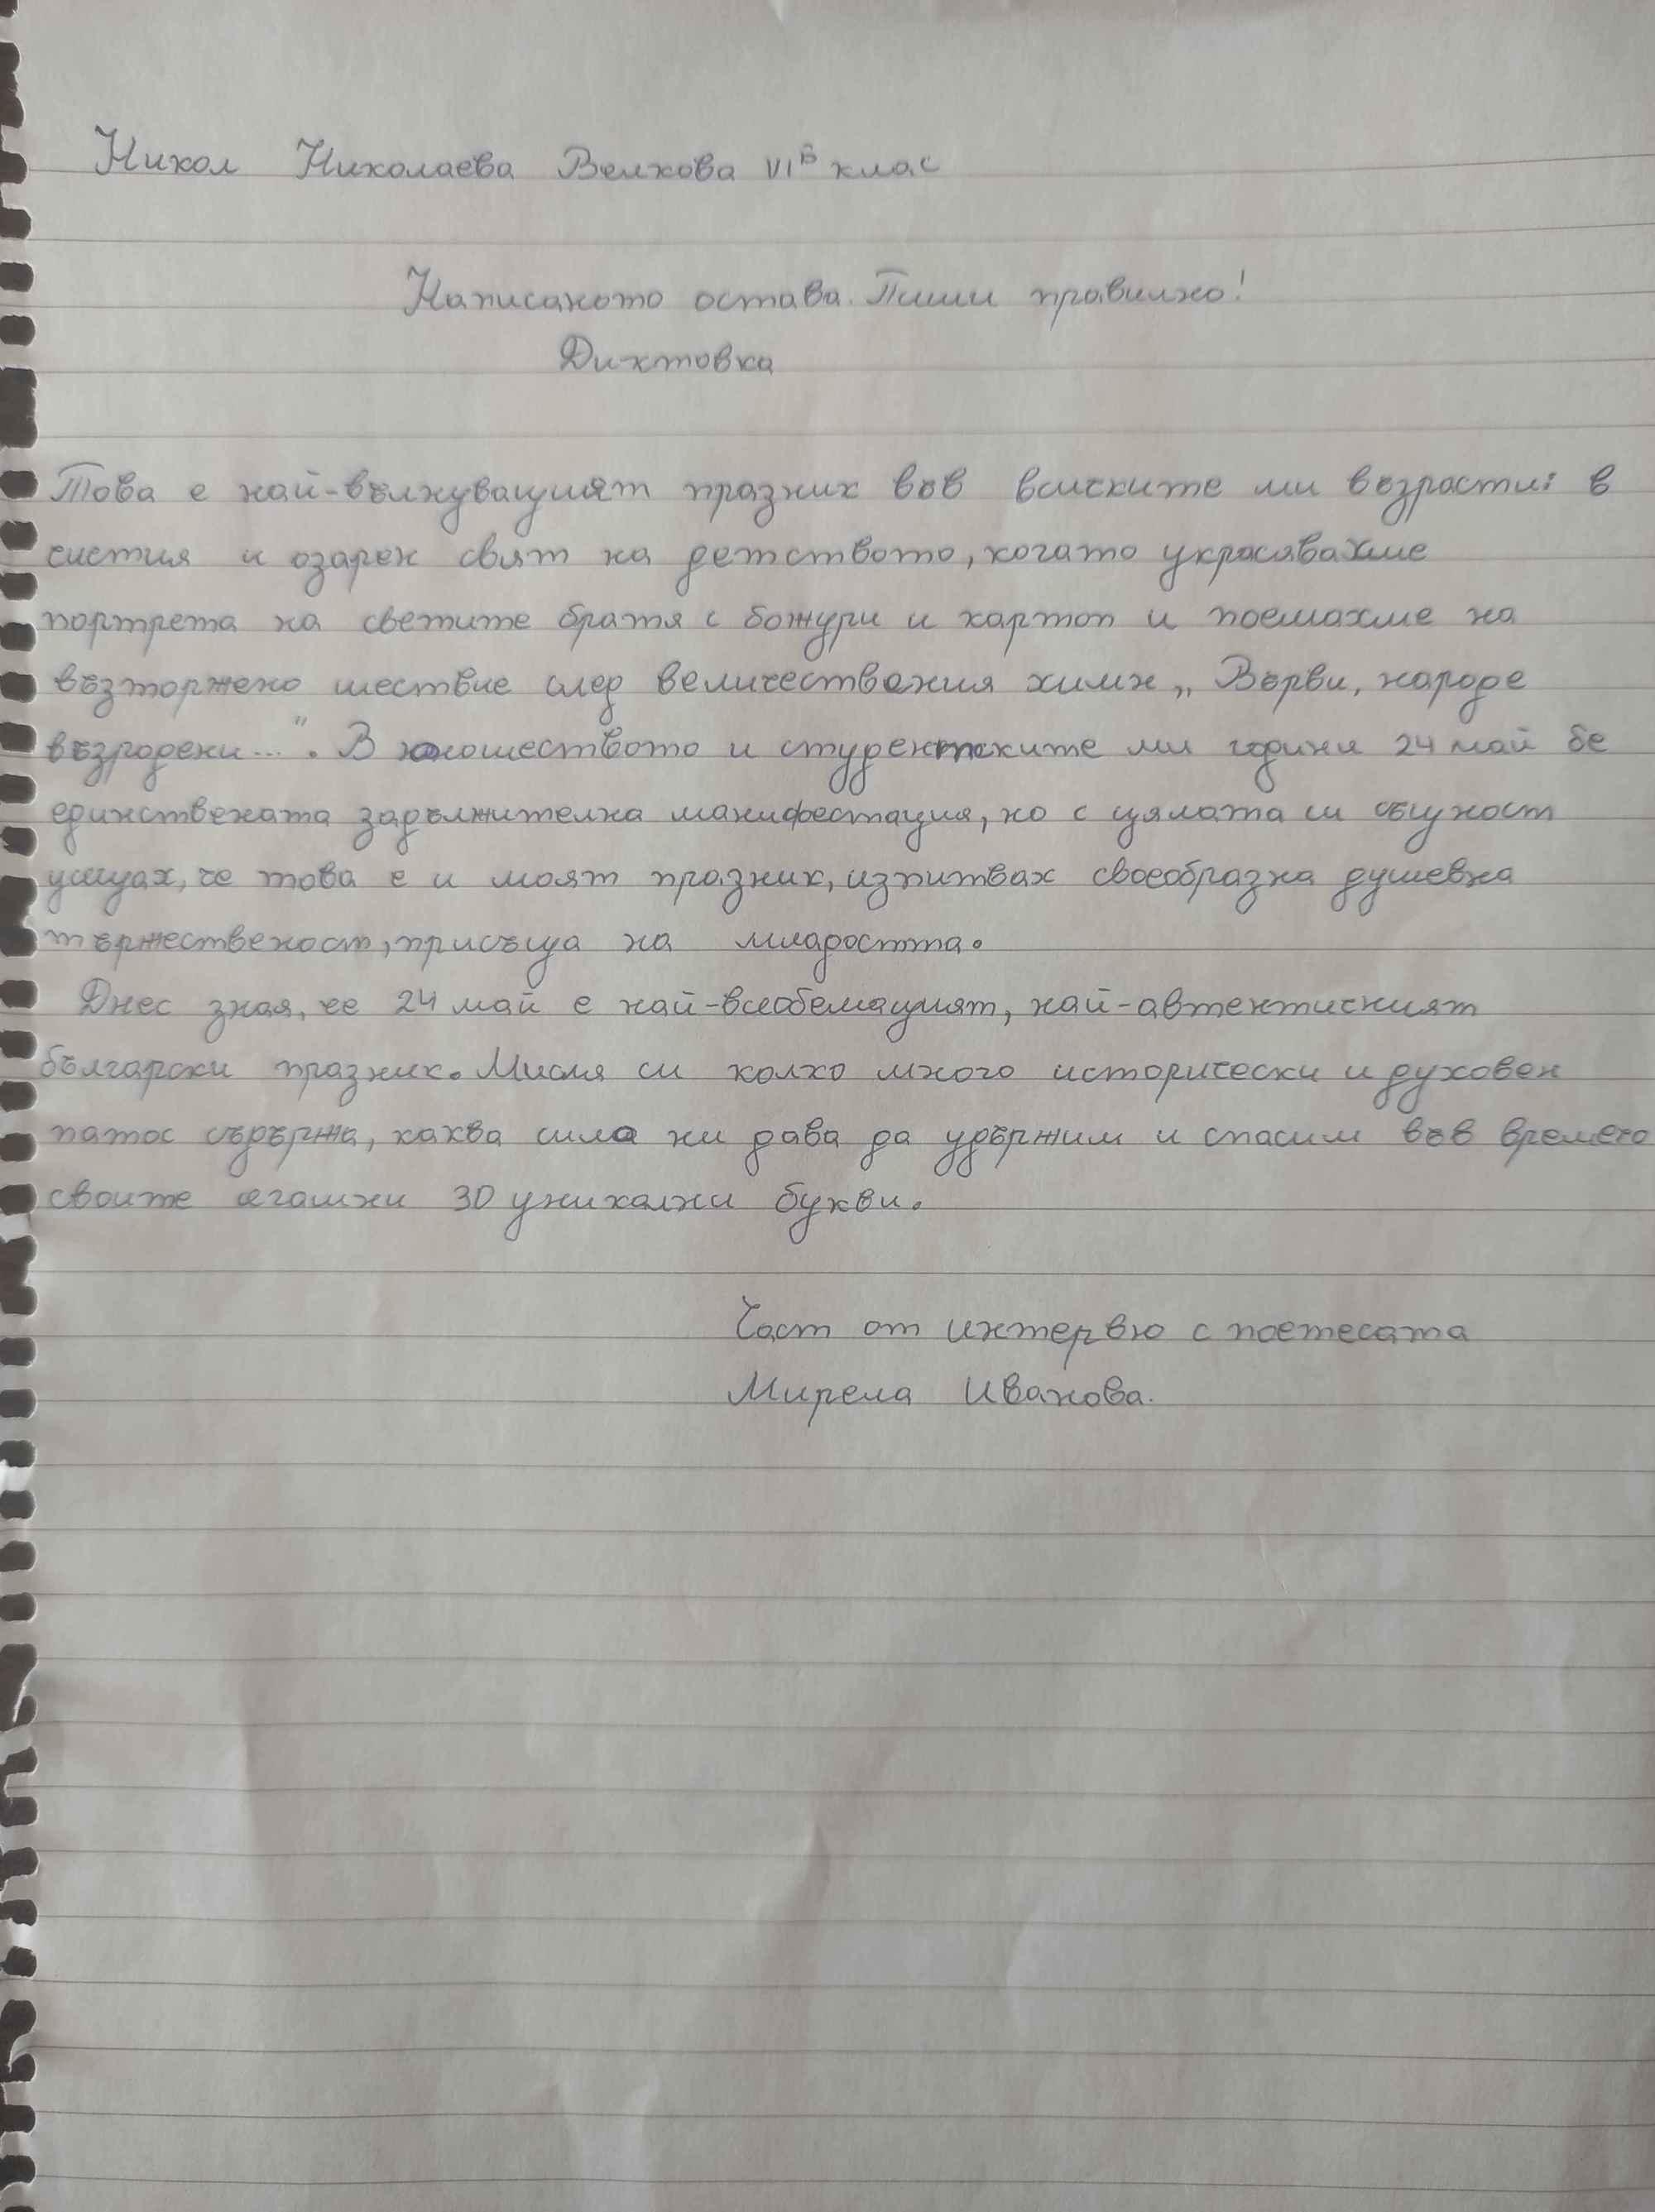 Никол Николаева Велкова VIв клас
Написаното остава. Пиши правилно!
Диктовка
Това е най-вълнуващият празник във всичките ми възрасти: в
чистия и озарен свят на детството, когато украсявахме
портрета на светите братя с божури и картоп и поемахме на
възторжено шествие след величествения химн „Върви, народе
възродени...". В юношеството и студентските ми години 24 май бе
единствената задължителна манифестация, но с цялата си същност
усещах, че това е и моят празник, изпитвах своеобразна душевна
тържественост, присъща на младостта.
Днес зная, че 24 май е най-всеобемащият, най-автентичният
български празник. Мисля си колко много исторически и духовен
патос съдържа, каква сила ни дава да удържим и спасим във времето
своите сегашни 30 уникални букви.
Част от интервю с поетесата
Мирела Иванова.